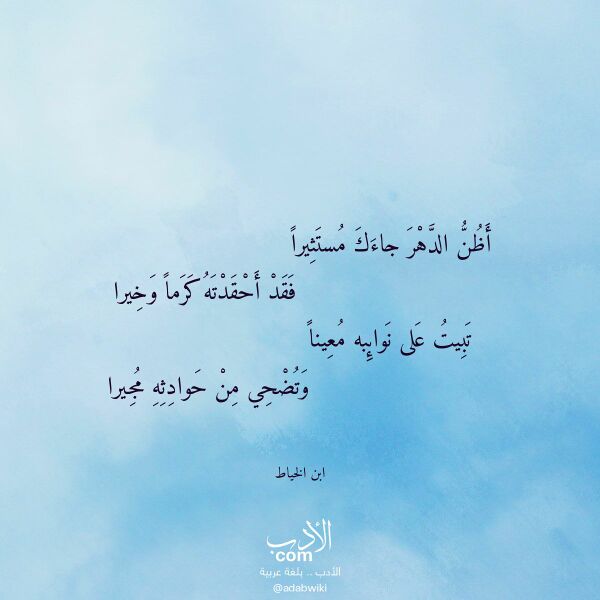 أَظُنُّ الدَّهْرَ جاءَكَ مُستَثِيراً
فَقَدْ أَحْقَدْتَهُ كَرَماً وَخِيرا
تَبِيتُ عَلى نَوايِبه مُعِيناً
وَتُضْحِي مِنْ حَوادِثِهِ مُجِيرا
ابن الخياط
الأدب
com
الأدب .. بلغة عربية
@adabwiki